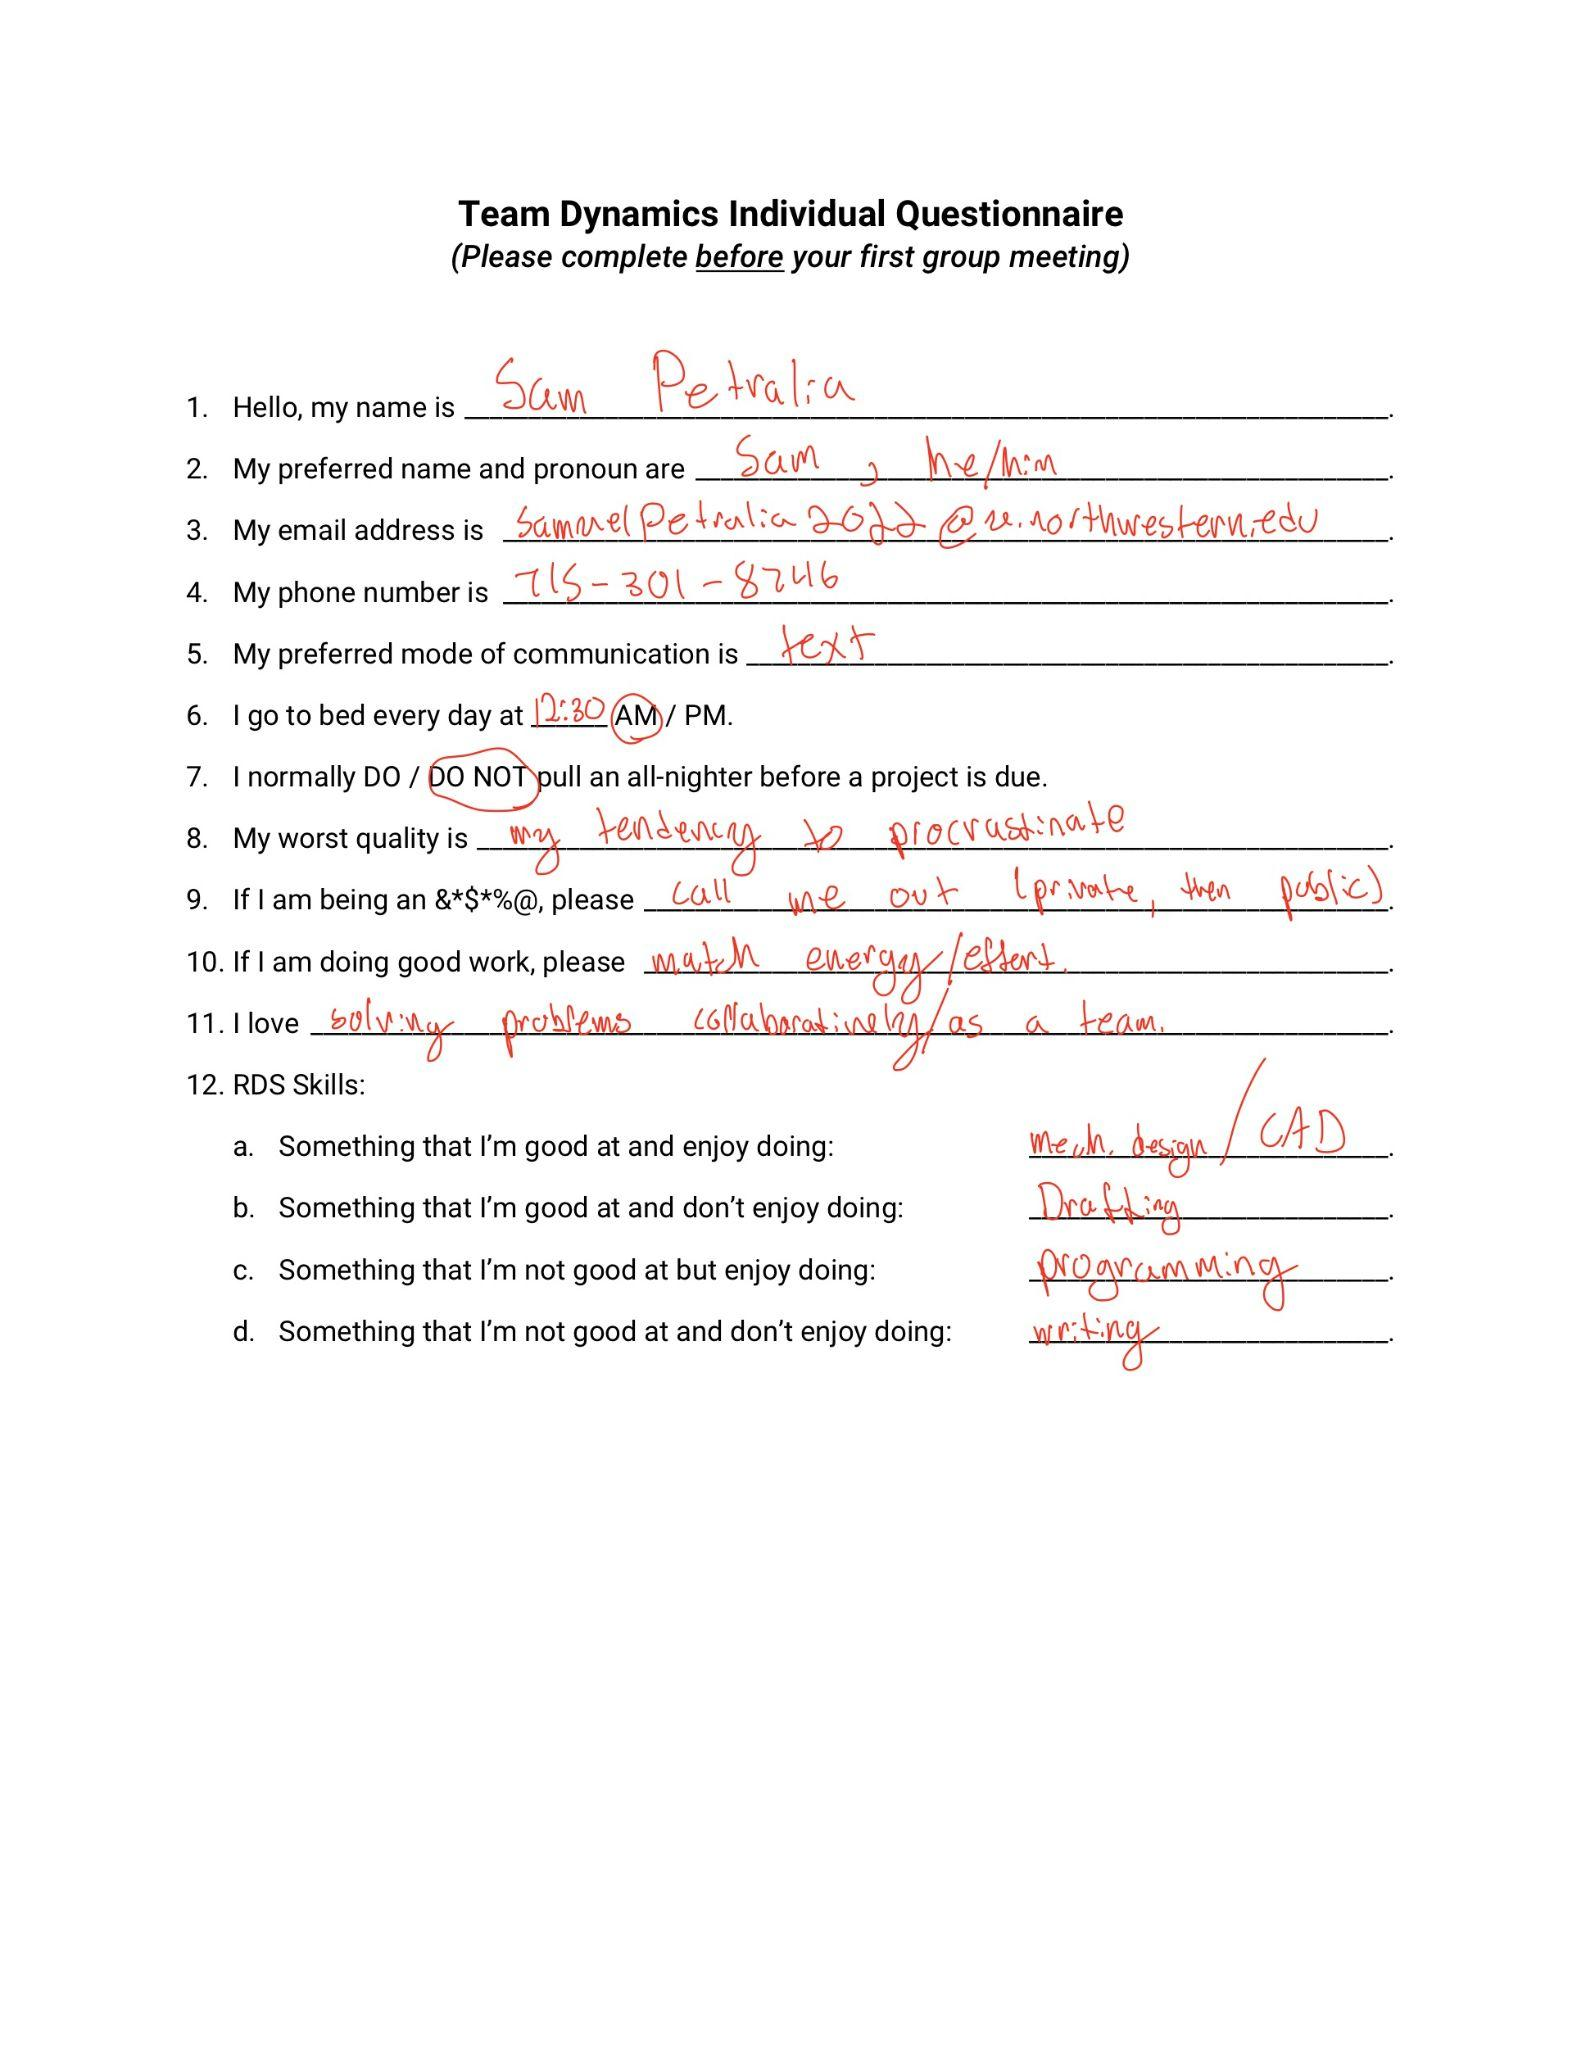 Team Dynamics Individual Questionnaire
(Please complete before your first group meeting)
1. Hello, my name is Sam Petralia.
2. My preferred name and pronoun are Sam, he/him.
3. My email address is SamuelPetralia2022@u.northwestern.edu.
4. My phone number is 715-301-8246.
5. My preferred mode of communication is text.
6. I go to bed every day at 12:30 AM / PM.
7. I normally DO / DO NOT pull an all-nighter before a project is due.
8. My worst quality is my tendency to procrastinate.
9. If I am being an &*$*%@, please call me out (private, then public).
10. If I am doing good work, please match energy/effort.
11. I love solving problems collaboratively/as a team.
12. RDS Skills:
a. Something that I'm good at and enjoy doing: mech. design / CAD.
b. Something that I'm good at and don't enjoy doing: Drafting.
c. Something that I'm not good at but enjoy doing: programming.
d. Something that I'm not good at and don't enjoy doing: writing.